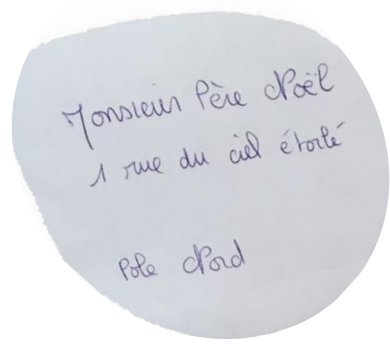 Monsieur Père Noël
1 rue du ciel étoilé
Pole Nord